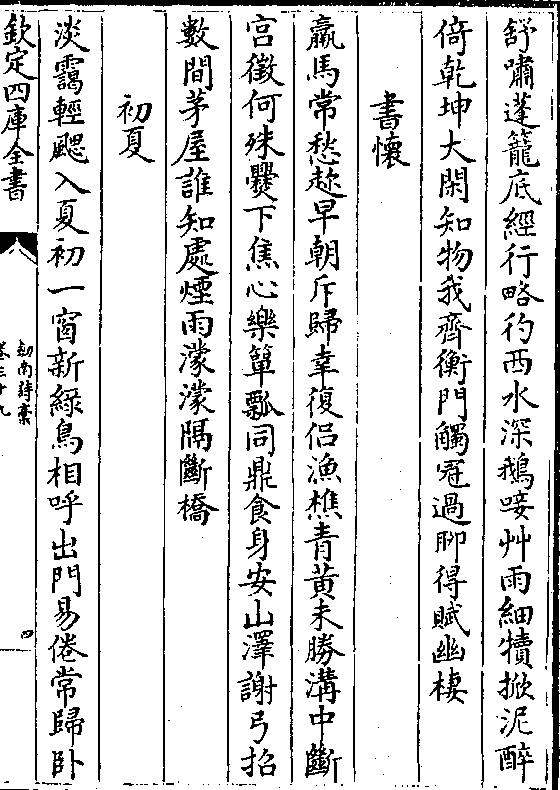 舒嘯蓬籠底經行略彴西水深鵝唼艸雨細犢掀泥醉
倚乾坤大閑知物我齊衡門觸冠過聊得賦幽棲
書懷
羸馬常愁趂早朝斥歸幸復侣漁樵青黃未勝溝中斷
宫徵何殊爨下焦心樂簞瓢同鼎食身安山澤謝弓招
數間茅屋誰知處煙雨濛濛隔斷橋
初夏
淡靄輕颸入夏初一窗新綠鳥相呼出門易倦常歸卧
欽定四庫全書
劍南詩稾
卷三十九
四